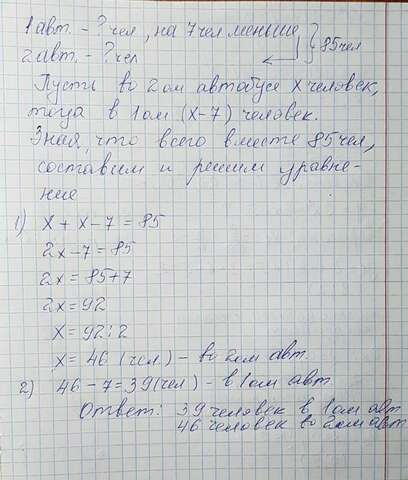 1 авт. - ? чел, на 7 чел меньше } 85 чел
2 авт. - ? чел
Пусть во 2ом автобусе x человек,
тогда в 1ом (x-7) человек.
Зная, что всего вместе 85 чел,
составим и решим уравне-
ние
1) x + x - 7 = 85
2x - 7 = 85
2x = 85+7
2x = 92
x = 92:2
x = 46 (чел) - во 2ом авт.
2) 46 - 7 = 39 (чел) - в 1ом авт.
Ответ: 39 человек в 1ом авт
46 человек во 2ом авт